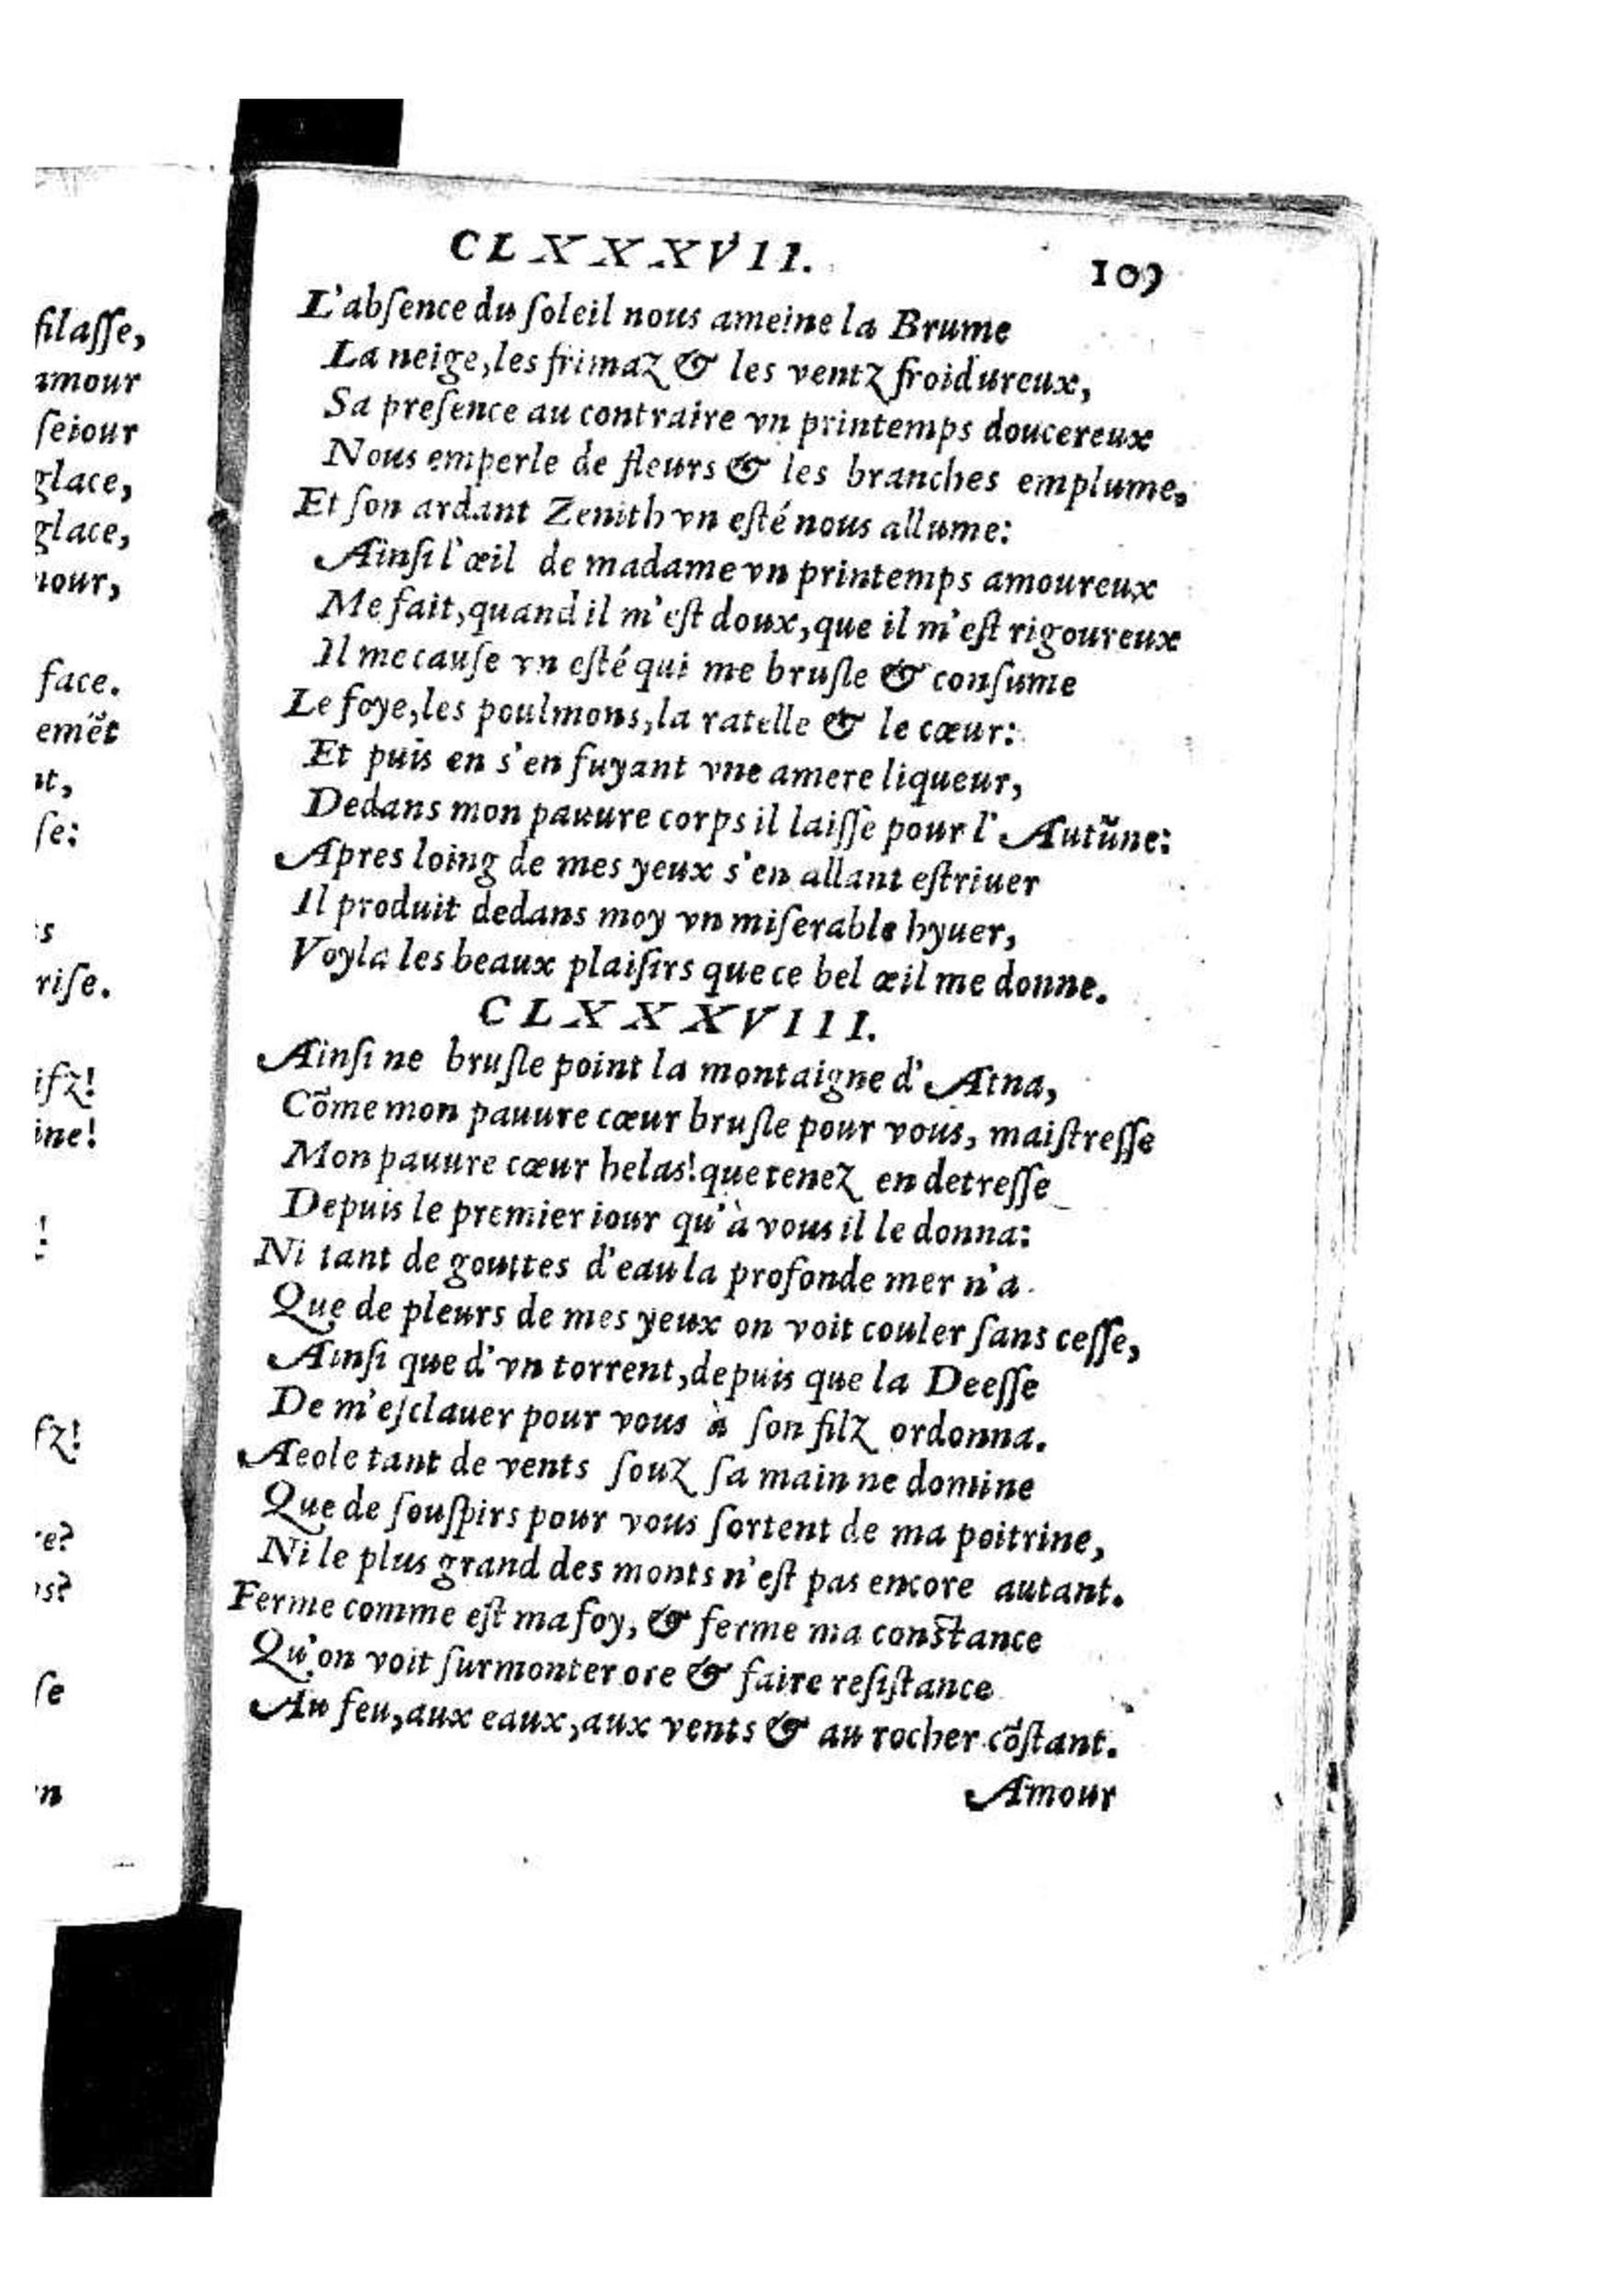 filaſſe,
amour
ſeiour
glace,
glace,
face.
ſe:
riſe.
CLXXXVII.
109
L'abſence du ſoleil nous ameine la Brume
La neige, les frimaz & les ventz froidureux,
Sa preſence au contraire vn printemps doucereux
Nous emperle de fleurs & les branches emplume,
Et ſon ardant Zenith vn eſté nous allume:
Ainſi l'œil de madame vn printemps amoureux
Me fait, quand il m'eſt doux, que il m'eſt rigoureux
Il me cauſe vn eſté qui me bruſle & conſume
Le foye, les poulmons, la ratelle & le cœur:
Et puis en s'en fuyant vne amere liqueur,
Dedans mon pauure corps il laiſſe pour l'Autũne:
Apres loing de mes yeux s'en allant eſtriuer
Il produit dedans moy vn miſerable hyuer,
Voyla les beaux plaiſirs que ce bel œil me donne.
CLXXXVIII.
Ainſi ne bruſle point la montaigne d'Ætna,
Cõme mon pauure cœur bruſle pour vous, maiſtreſſe
Mon pauure cœur helas! que tenez en detreſſe
Depuis le premier iour qu'à vous il le donna:
Ni tant de gouttes d'eau la profonde mer n'a
Que de pleurs de mes yeux on voit couler ſans ceſſe,
Ainſi que d'vn torrent, depuis que la Deeſſe
De m'eſclauer pour vous à ſon filz ordonna.
Aeole tant de vents ſouz ſa main ne domine
Que de ſouſpirs pour vous ſortent de ma poitrine,
Ni le plus grand des monts n'eſt pas encore autant.
Ferme comme eſt ma foy, & ferme ma conſtance
Qu'on voit ſurmonter ore & faire reſiſtance
Au feu, aux eaux, aux vents & au rocher cõſtant.
Amour